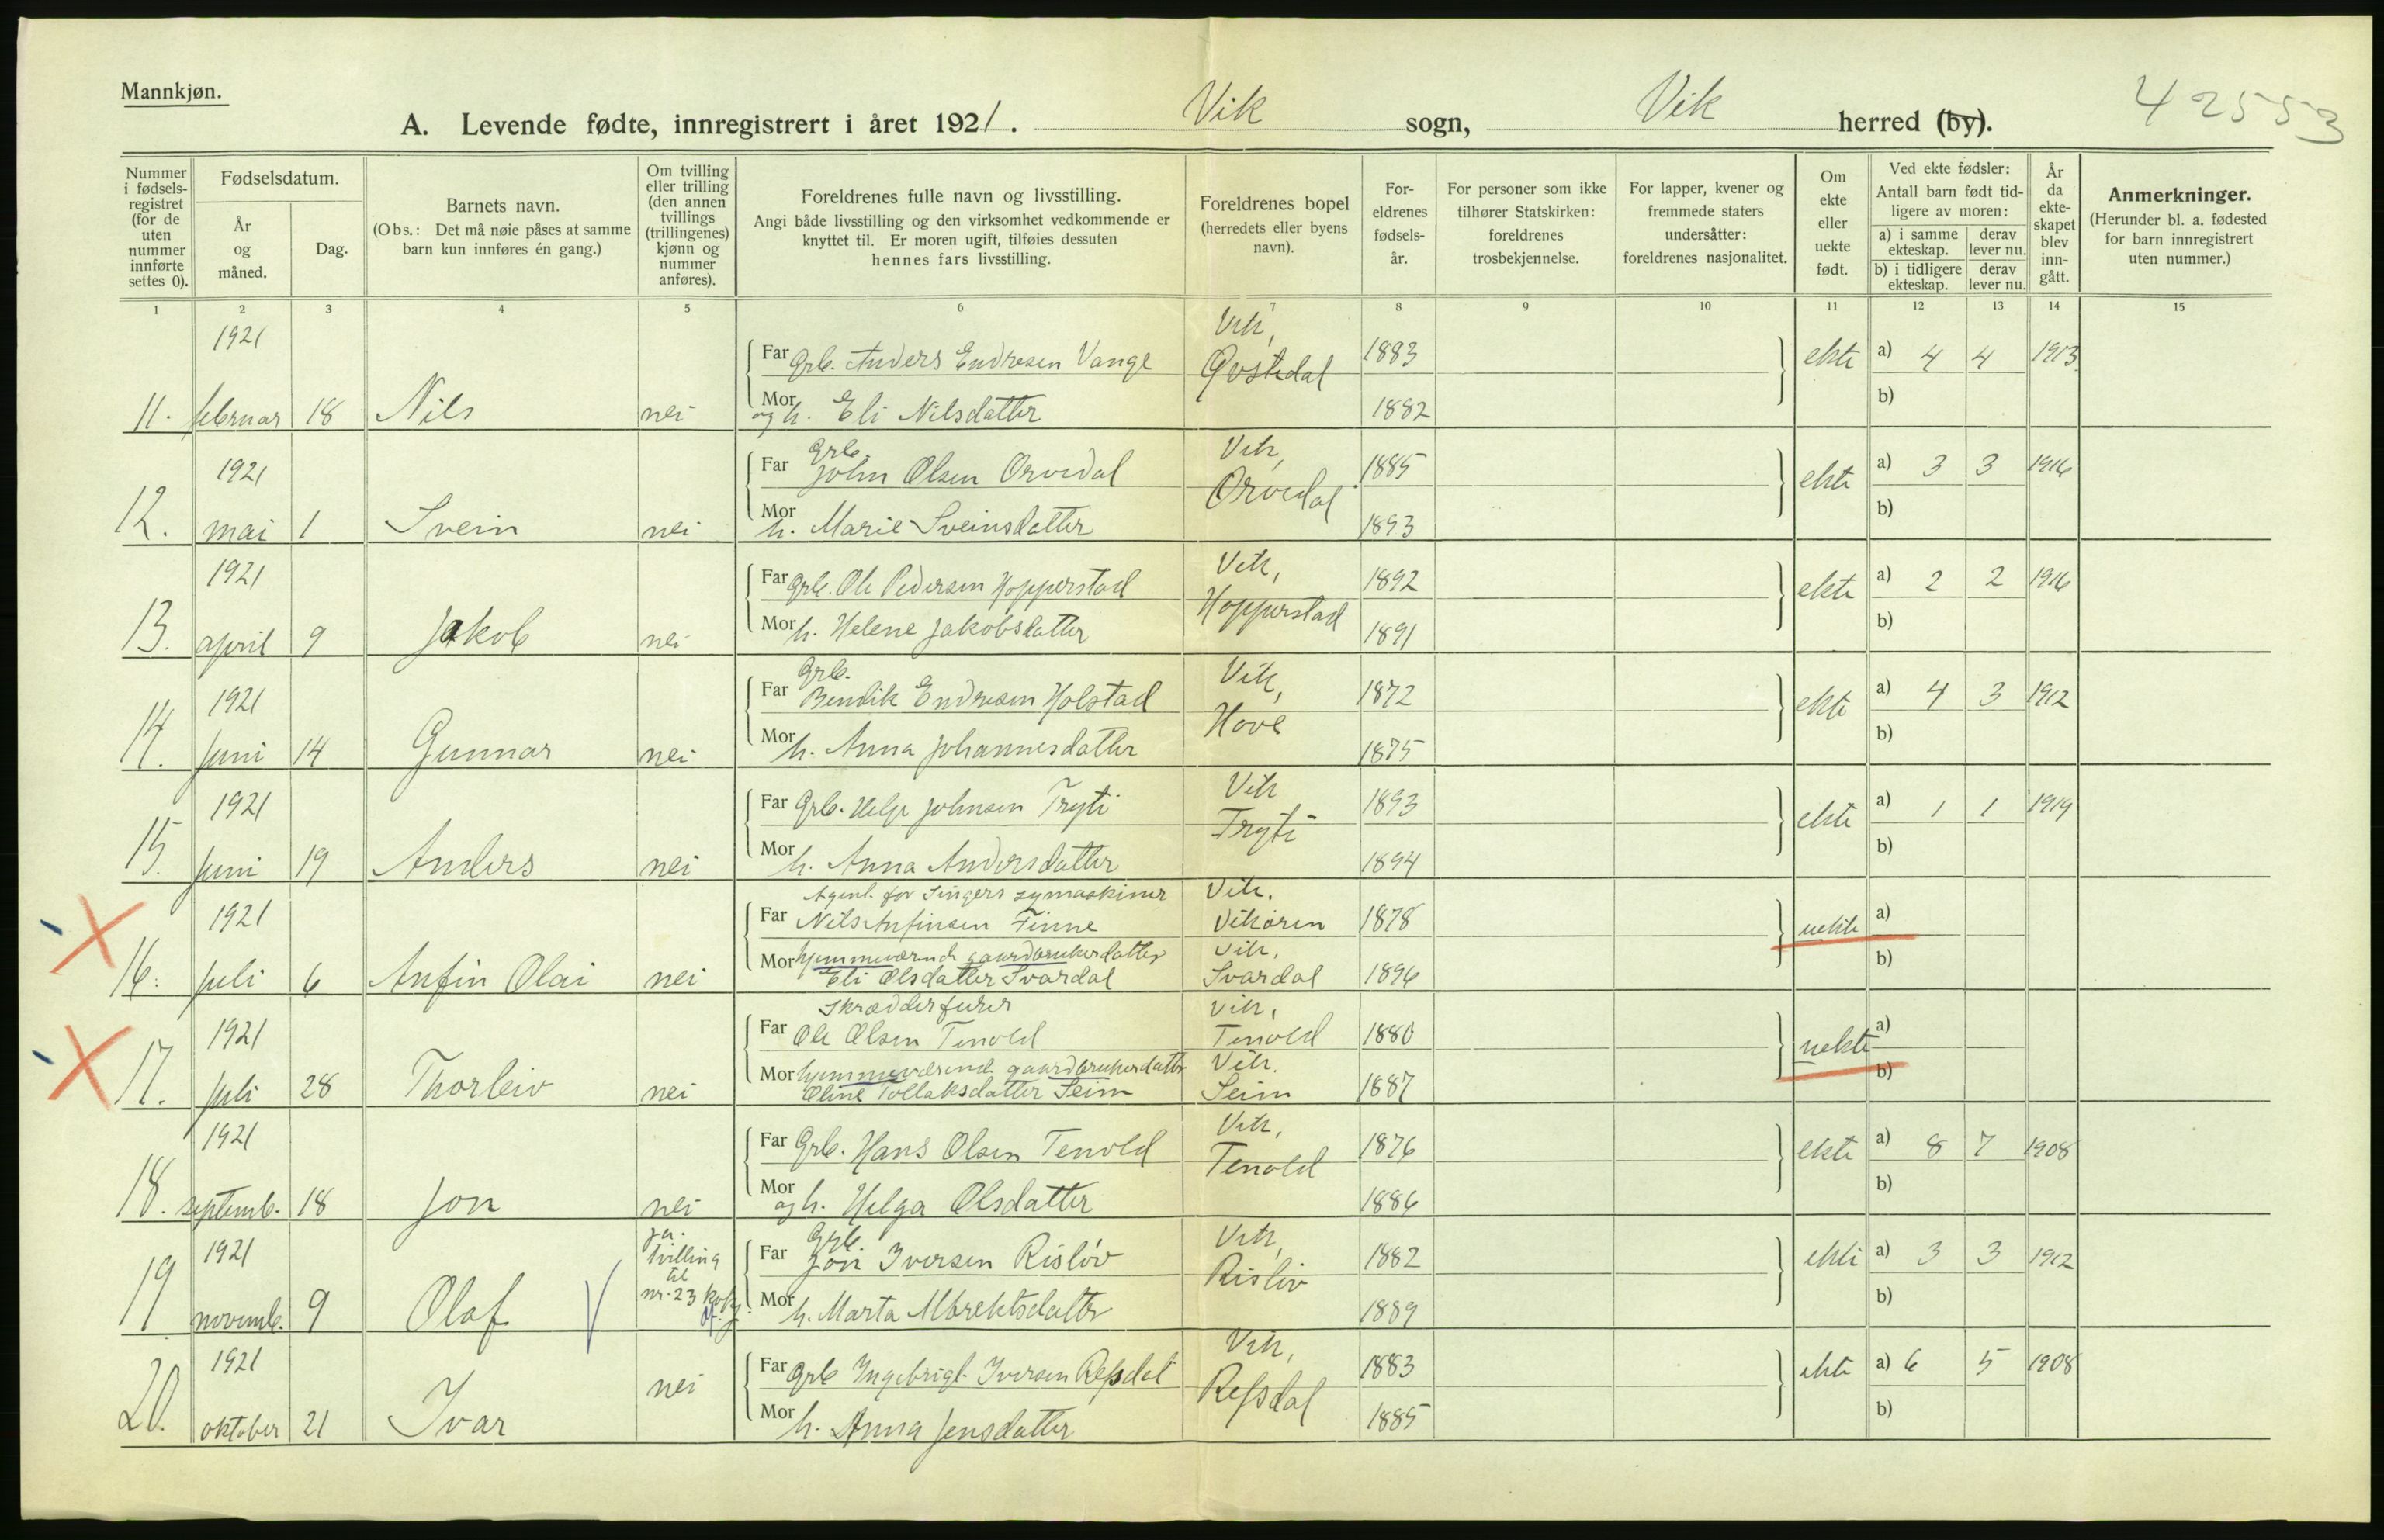 Mannkjøn.
A. Levende fødte, innregistrert i året 1921. Vik sogn, Vik herred (by).
42553
Nummer i fødsels- registret (for de uten nummer innførte settes 0).
Fødselsdatum.
År og måned.
Dag.
Barnets navn.
(Obs.: Det må nøie påses at samme barn kun innføres én gang.)
Om tvilling eller trilling (den annen tvillings (trillingenes) kjønn og nummer anføres).
Foreldrenes fulle navn og livsstilling.
Angi både livsstilling og den virksomhet vedkommende er knyttet til. Er moren ugift, tilføies dessuten hennes fars livsstilling.
Foreldrenes bopel (herredets eller byens navn).
For- eldrenes fødsels- år.
For personer som ikke tilhører Statskirken: foreldrenes trosbekjennelse.
For lapper, kvener og fremmede staters undersåtter: foreldrenes nasjonalitet.
Om ekte eller uekte født.
Ved ekte fødsler: Antall barn født tid- ligere av moren:
a) i samme ekteskap.
derav lever nu.
b) i tidligere ekteskap.
derav lever nu.
År da ekte- skapet blev inn- gått.
Anmerkninger.
(Herunder bl. a. fødested for barn innregistrert uten nummer.)
1 2 3 4 5 6 7 8 9 10 11 12 13 14 15
1921 Far Grb. Anders Endresen Vange Vik, 1883 ekte a) 4 4 1913
11. februar 18 Nils nei Mor og h. Eli Nilsdatter 1882 b)
1921 Far Grb. John Olsen Orvedal Vik, Orvedal 1885 ekte a) 3 3 1916
12. mai 1 Svein nei Mor h. Marie Sveinsdatter 1893 b)
1921 Far Grb. Ole Pedersen Hopperstad Vik, Hopperstad 1892 ekte a) 2 2 1916
13. april 9 Jakob nei Mor h. Helene Jakobsdatter 1891 b)
1921 Far Grb. Bendik Endresen Holstad Vik, Hove 1872 ekte a) 4 3 1912
14. juni 14 Gunnar nei Mor h. Anna Johannesdatter 1875 b)
1921 Far Grb. Helge Johnsen Tryti Vik Tryti 1893 ekte a) 1 1 1919
15. juni 19 Anders nei Mor h. Anna Andersdatter 1894 b)
Agent for Singers symaskiner
1921 Far Nils Anfinsen Finne Vik. Vikøren 1878 uekte a)
16. juli 6 Anfin Olai nei Mor hjemmeværende gaardbrukerdatter Eli Olsdatter Svardal Vik, Svardal 1896 b)
Skrædder
1921 Far Ole Olsen Tenold Vik, Tenold 1880 uekte a)
17. juli 28 Thorleiv nei Mor hjemmeværende gaardbrukerdatter Oline Tollaksdatter Seim Vik. Seim 1887 b)
1921 Far Grb. Hans Olsen Tenold Vik, Tenold 1876 ekte a) 8 7 1908
18. septemb. 18 Jon nei Mor og h. Helga Olsdatter 1886 b)
1921 ja. tvilling til nr. 23 Far Grb. Jon Iversen Risløv Vik, Risløv 1882 ekte a) 3 3 1912
19 novemb. 9 Olaf Mor h. Marta Albrektsdatter 1889 b)
1921 nei Far Grb Ingebrigt Iversen Refsdal Vik, Refsdal 1883 ekte a) 6 5 1908
20. oktober 21 Ivar Mor h. Anna Jensdatter 1885 b)